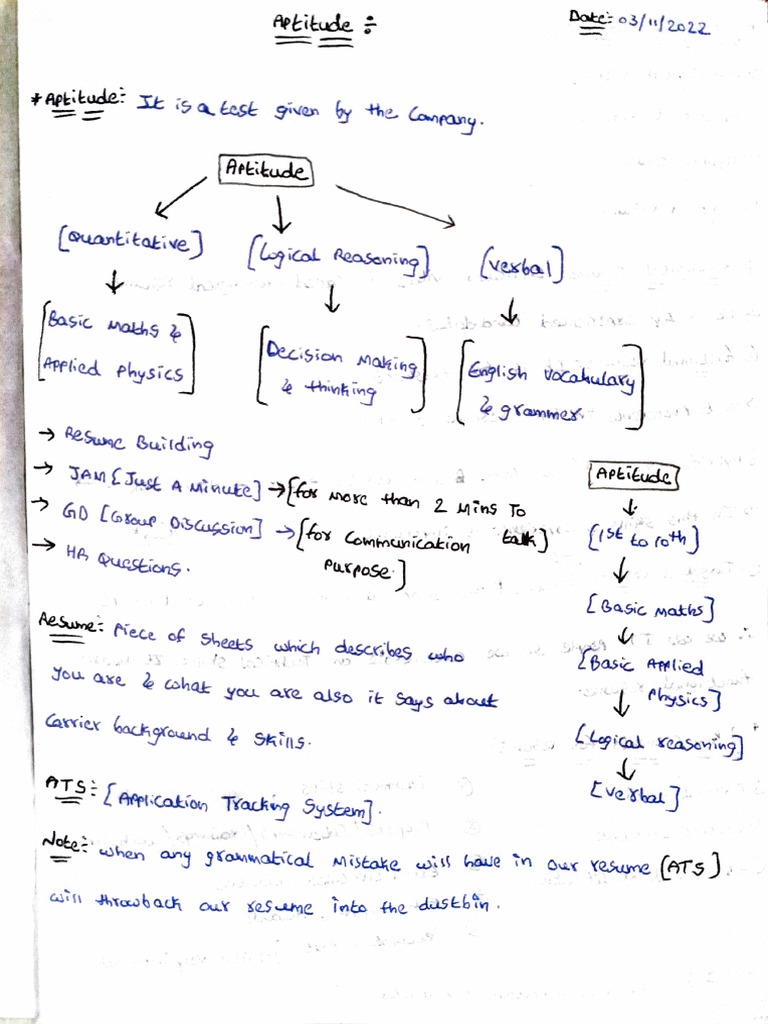 Aptitude :-
Date:- 03/11/2022
* Aptitude:- It is a test given by the Company.
Aptitude
[Quantitative] [Logical Reasoning] [Verbal]
[Basic Maths &
Applied Physics]
[Decision Making
& thinking]
[English vocabulary
& grammer]
→ Resume Building
→ JAM [Just A Minute] → [for more than 2 Mins To
talk]
→ GD [Group Discussion] → [for communication
purpose.]
→ HR Questions.
Aptitude
[1st to 10th]
[Basic Maths]
[Basic Applied
Physics]
[Logical reasoning]
[Verbal]
Resume:- Piece of sheets which describes who
you are & what you are also it says about
carrier background & skills.
ATS:- [Application Tracking System].
Note:- when any grammatical mistake will have in our resume [ATS]
will throwback our resume into the dustbin.